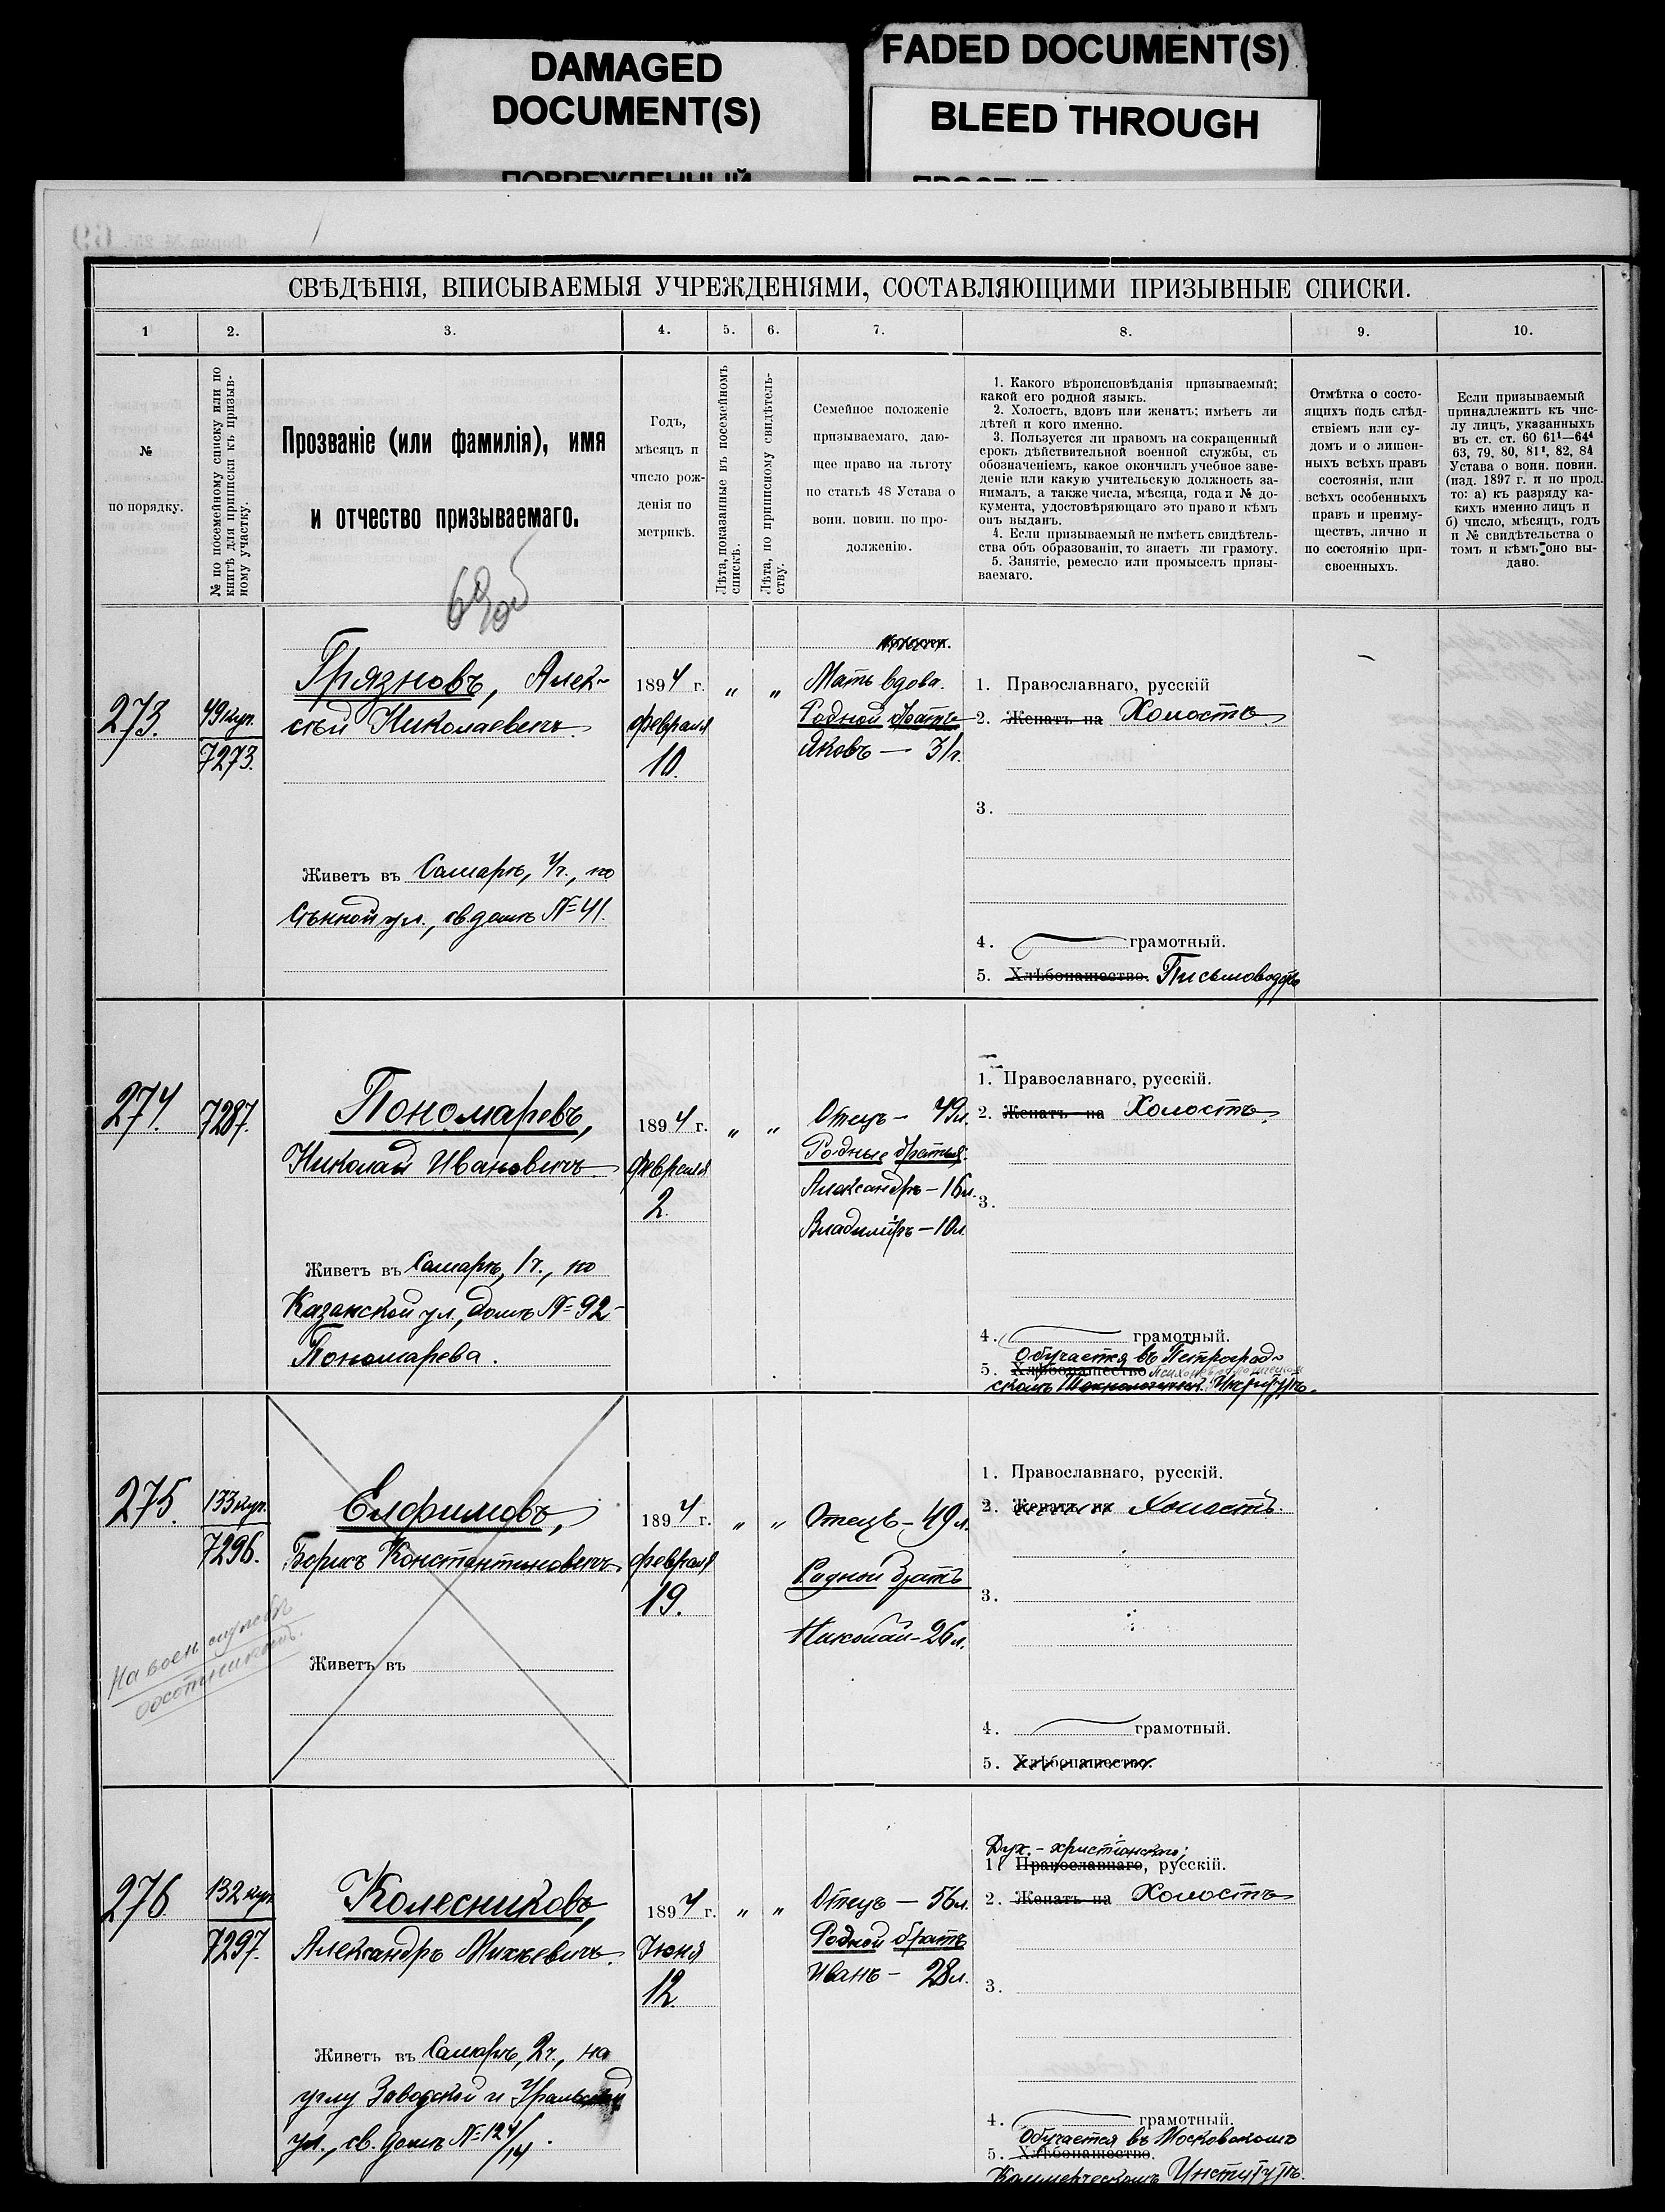 DAMAGED
DOCUMENT(S)
FADED DOCUMENT(S)
BLEED THROUGH
СВѢДѢНІЯ, ВПИСЫВАЕМЫЯ УЧРЕЖДЕНІЯМИ, СОСТАВЛЯЮЩИМИ ПРИЗЫВНЫЕ СПИСКИ.
1 2. 3. 4. 5. 6. 7. 8. 9. 10.
№
по порядку.
№ по посемейному списку или по
книгѣ для приписки къ призыв-
ному участку.
Прозваніе (или фамилія), имя
и отчество призываемаго.
Годъ,
мѣсяцъ и
число рож-
денія по
метрикѣ.
Лѣта, показанные въ посемейномъ
спискѣ.
Лѣта, по приписному свидѣтель-
ству.
Семейное положеніе
призываемаго, даю-
щее право на льготу
по статьѣ 48 Устава о
воин. повин. по про-
долженію.
1. Какого вѣроисповѣданія призываемый;
какой его родной языкъ.
2. Холостъ, вдовъ или женатъ; имѣетъ ли
дѣтей и кого именно.
3. Пользуется ли правомъ на сокращенный
срокъ дѣйствительной военной службы, съ
обозначеніемъ, какое окончилъ учебное заве-
деніе или какую учительскую должность за-
нималъ, а также числа, мѣсяца, года и № до-
кумента, удостовѣряющаго это право и кѣмъ
онъ выданъ.
4. Если призываемый не имѣетъ свидѣтель-
ства объ образованіи, то знаетъ ли грамоту.
5. Занятіе, ремесло или промыселъ призы-
ваемаго.
Отмѣтка о состо-
ящихъ подъ слѣд-
ствіемъ или су-
домъ и о лишен-
ныхъ всѣхъ правъ
состоянія, или
всѣхъ особенныхъ
правъ и преиму-
ществъ, лично и
по состоянію при-
своенныхъ.
Если призываемый
принадлежитъ къ чис-
лу лицъ, указанныхъ
въ ст. ст. 60 61¹—64⁴
63, 79, 80, 81¹, 82, 84
Устава о воин. повин.
(изд. 1897 г. и по прод.
то: а) къ разряду ка-
кихъ именно лицъ и
б) число, мѣсяцъ, годъ
и № свидѣтельства о
томъ и кѣмъ оно вы-
дано.
273.
49 куп.
7273.
Грязновъ, Алек-
сѣй Николаевичъ.
Живетъ въ Самарѣ, 4 ч., по
Сѣнной ул., св. домъ № 41.
1894 г.
февраля
10.
" "
Мать вдова.
Родной братъ
Яковъ — 31 г.
1. Православнаго, русскій
2. Женатъ на Холостъ.
3.
4. грамотный.
5. Хлѣбопашество. Письмоводство
274.
7287.
Пономаревъ,
Николай Ивановичъ.
Живетъ въ Самарѣ, 1 ч., по
Казанской ул., домъ № 92-
Пономарева.
1894 г.
февраля
2.
" "
Отецъ — 49 л.
Родные братья:
Александръ — 16 л.
Владиміръ — 10 л.
1. Православнаго, русскій.
2. Женатъ на Холостъ.
3.
4. грамотный.
Обучается въ Петроград-
5. Хлѣбопашество
скомъ Институтѣ.
275.
133 куп.
7296.
На воен. службѣ
охотникомъ.
Елфимовъ,
Борисъ Константиновичъ.
Живетъ въ
1894 г.
февраля
19.
" "
Отецъ — 49 л.
Родной братъ
Николай — 26 л.
1. Православнаго, русскій.
2. Женатъ на Холостъ.
3.
4. грамотный.
5. Хлѣбопашество.
276
132 куп.
7297.
Колесниковъ,
Александръ Михѣевичъ.
Живетъ въ Самарѣ, 2 ч., на
углу Заводской и Уральской
ул., св. домъ № 124/14.
1894 г.
Іюня
12.
" "
Отецъ — 56 л.
Родной братъ
Иванъ — 28 л.
Дух.-христіанскаго,
1. Православнаго, русскій.
2. Женатъ на Холостъ
3.
4. грамотный.
Обучается въ Московскомъ
5. Хлѣбопашество.
Коммерческомъ Институтѣ.